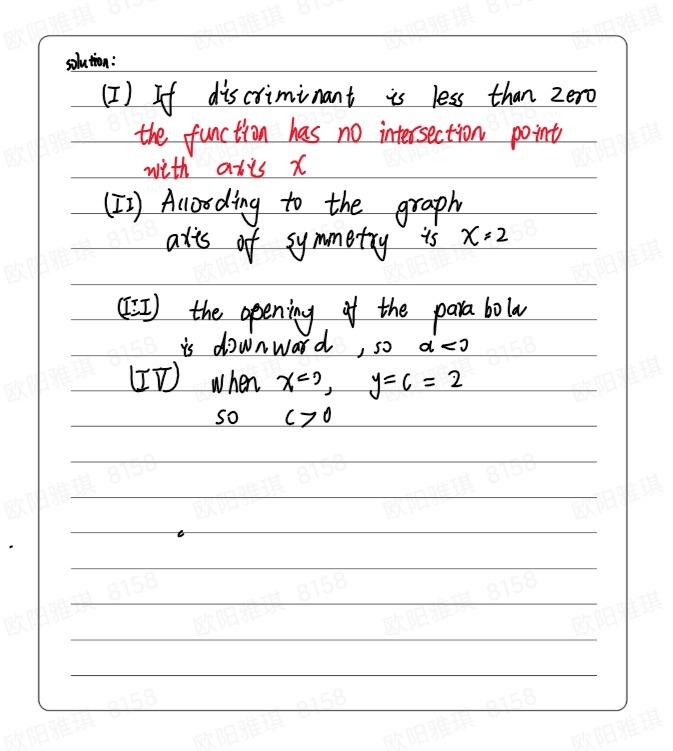 solution:
(I) If discriminant is less than zero
the function has no intersection point
with axis x
(II) According to the graph
axis of symmetry is x=2
(III) the opening of the parabola
is downward, so a<0
(IV) when x=0, y=c=2
so c>0
欧阳雅琪 8158